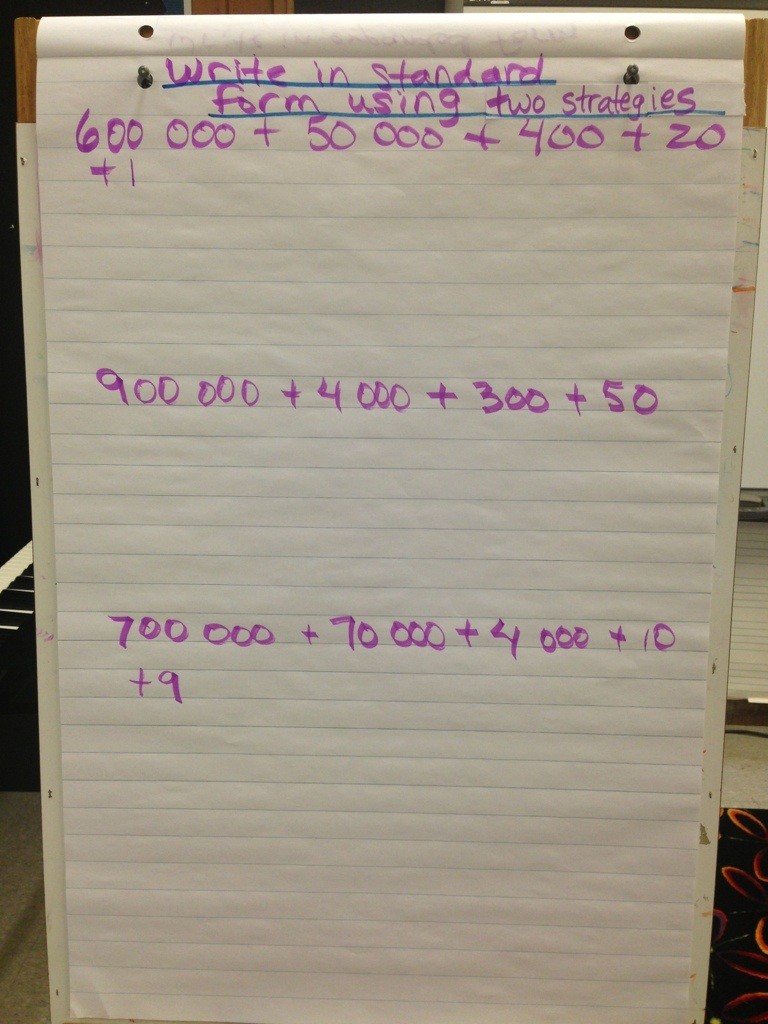 Write in standard
form using two strategies
600 000 + 50 000 + 400 + 20
+ 1
900 000 + 4 000 + 300 + 50
700 000 + 70 000 + 4 000 + 10
+ 9